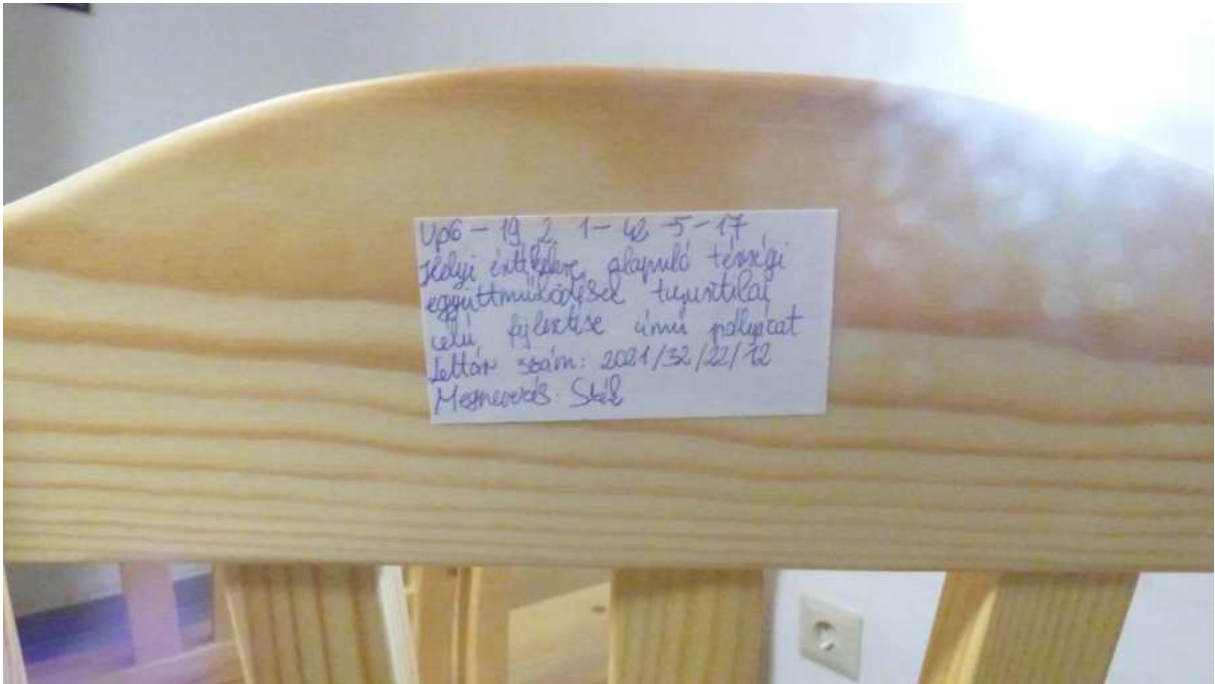 Vp6 - 19 2 1 - 42 -5 - 17
Helyi értékekre alapuló térségi
együttműködések turisztikai
célú fejlesztése című pályázat
Leltár szám: 2021/32/22/12
Megnevezés: Szék